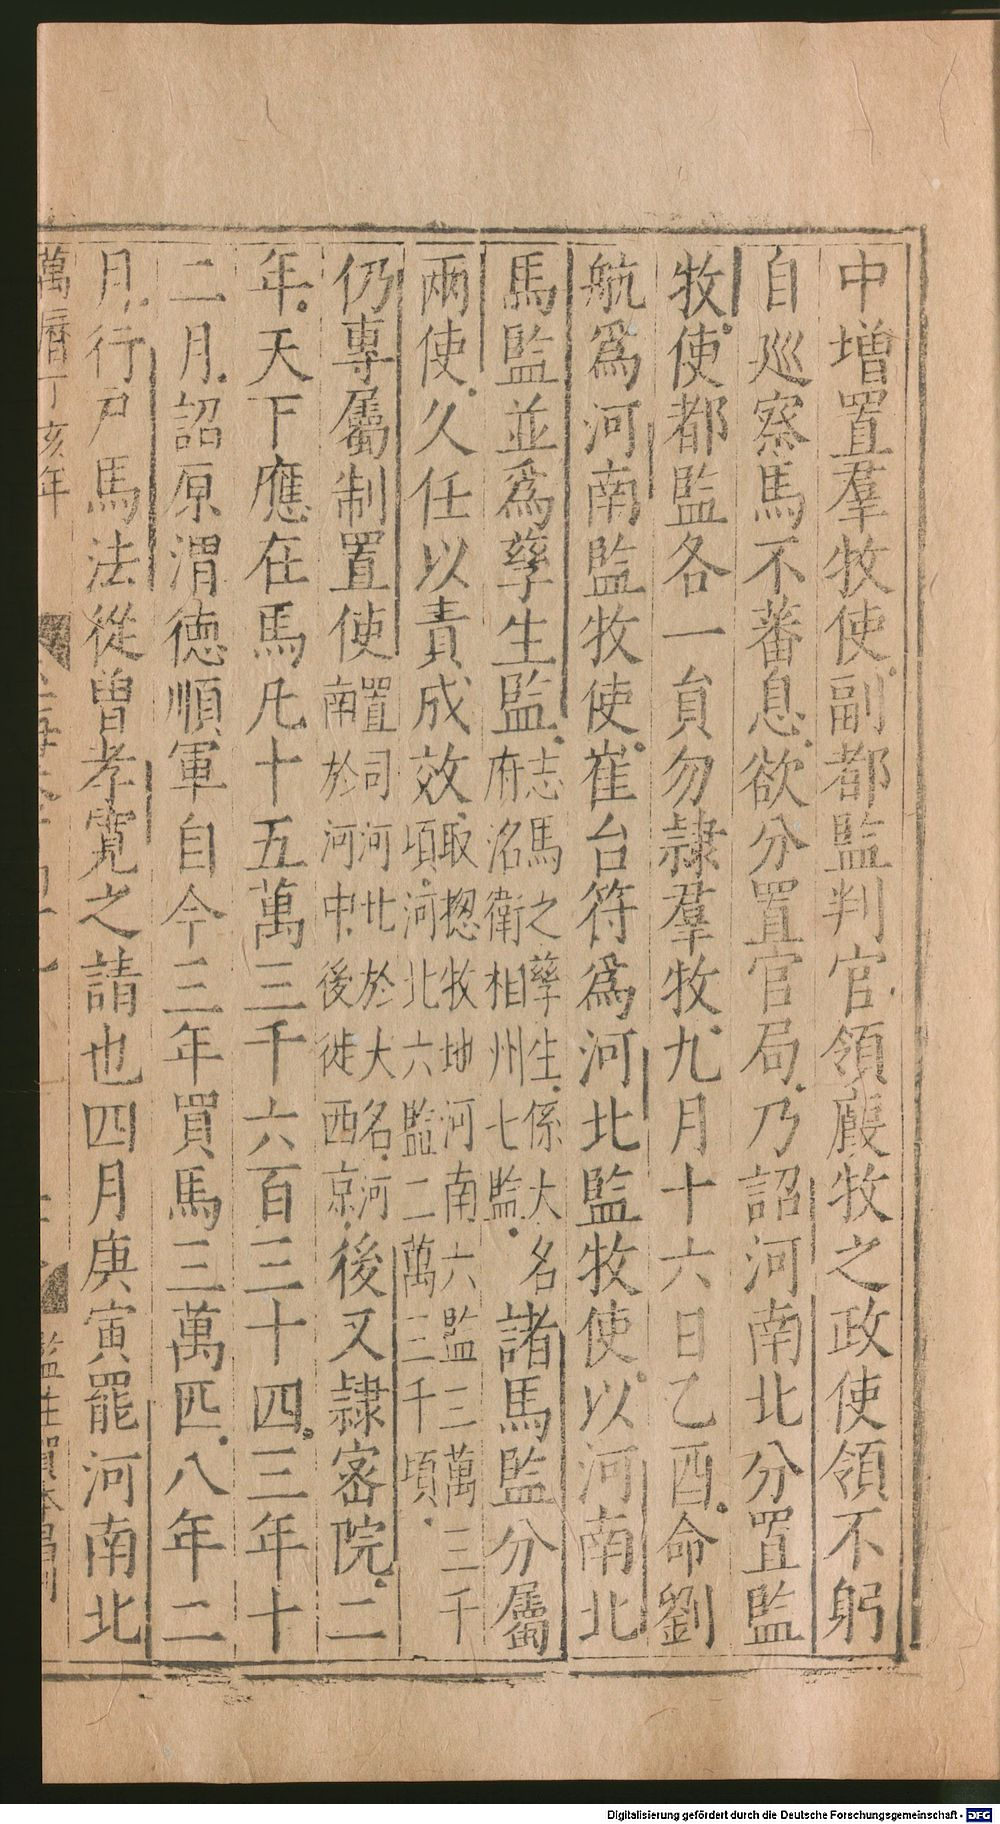 中増置羣牧使副都監判官領廄牧之政使領不躬
自廵察馬不蕃息欲分置官局乃詔河南北分置監
牧使都監各一貟勿隷羣牧九月十六日乙酉命劉
航爲河南監牧使崔台符爲河北監牧使以河南北
馬監並爲孳生監志馬之孳生係大名
府洺衛相州七監諸馬監分屬
兩使久任以責成效取揔牧地河南六監三萬三千
頃河北六監二萬三千頃
仍專屬制置使置司河北於大名河
南於河中後徙西京後又隷宻院二
年天下應在馬凡十五萬三千六百三十四三年十
二月詔原渭徳順軍自今三年買馬三萬匹八年二
月行戸馬法從曽孝寛之請也四月庚寅罷河南北
萬曆丁亥年
監生
Digitalisierung gefördert durch die Deutsche Forschungsgemeinschaft - DFG